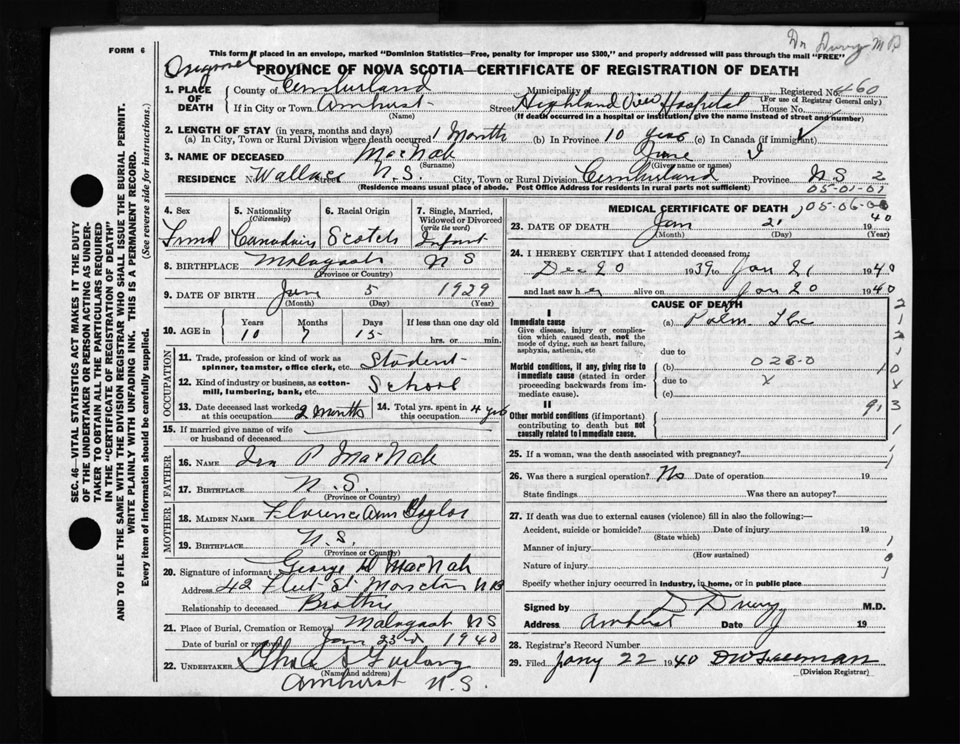 Dr Drury M D
FORM 6
This form if placed in an envelope, marked "Dominion Statistics—Free, penalty for improper use $300," and properly addressed will pass through the mail "FREE"
PROVINCE OF NOVA SCOTIA—CERTIFICATE OF REGISTRATION OF DEATH
SEC. 46—VITAL STATISTICS ACT MAKES IT THE DUTY
OF THE UNDERTAKER OR PERSON ACTING AS UNDER-
TAKER TO OBTAIN ALL THE PARTICULARS REQUIRED
IN THE "CERTIFICATE OF REGISTRATION OF DEATH"
AND TO FILE THE SAME WITH THE DIVISION REGISTRAR WHO SHALL ISSUE THE BURIAL PERMIT.
WRITE PLAINLY WITH UNFADING INK. THIS IS A PERMANENT RECORD.
Every item of information should be carefully supplied. (See reverse side for instructions.)
1. PLACE OF DEATH County of Cumberland Municipality of Registered No. 460
(For use of Registrar General only)
If in City or Town Amherst Street Highland View Hospital House No.
(Name) (If death occurred in a hospital or institution, give the name instead of street and number)
2. LENGTH OF STAY (in years, months and days)
(a) In City, Town or Rural Division where death occurred 1 Month (b) In Province 10 years (c) In Canada (if immigrant)
3. NAME OF DECEASED MacNab
(Surname) (Given name or names)
RESIDENCE No. Wallace Street N.S. City, Town or Rural Division Cumberland Province N S 2
(Residence means usual place of abode. Post Office Address for residents in rural parts not sufficient) 05-01-01
4. Sex 5. Nationality (Citizenship) 6. Racial Origin 7. Single, Married, Widowed or Divorced (write the word)
Canadian Scotch Infant
8. BIRTHPLACE Malagash N S
(Province or Country)
9. DATE OF BIRTH June 5 1929
(Month) (Day) (Year)
10. AGE in Years Months Days If less than one day old
10 7 15 hrs. or min.
OCCUPATION
11. Trade, profession or kind of work as spinner, teamster, office clerk, etc. Student
12. Kind of industry or business, as cotton-mill, lumbering, bank, etc. School
13. Date deceased last worked at this occupation 2 months 14. Total yrs. spent in this occupation 4 yrs
15. If married give name of wife or husband of deceased
FATHER
16. NAME Ira P MacNab
17. BIRTHPLACE N.S.
(Province or Country)
MOTHER
18. MAIDEN NAME Florence Ann
19. BIRTHPLACE N.S.
(Province or County)
20. Signature of informant George D MacNab
Address 42 Fleet St. Moncton N B
Relationship to deceased Brother
21. Place of Burial, Cremation or Removal Malagash NS
Date of burial or removal Jan 23rd 1940
22. UNDERTAKER
(Name and address)
Amherst N.S.
MEDICAL CERTIFICATE OF DEATH 05-06-0
23. DATE OF DEATH Jan 21 1940
(Month) (Day) (Year)
24. I HEREBY CERTIFY that I attended deceased from:
Dec 20 1939 to Jan 21 1940
and last saw her alive on Jan 20 1940
CAUSE OF DEATH
I
Immediate cause (a) Pulm. Tbc
Give disease, injury or complica-
tion which caused death, not the
mode of dying, such as heart failure,
asphyxia, asthenia, etc due to
Morbid conditions, if any, giving rise to (b) 023-0
immediate cause (stated in order due to x
proceeding backwards from im-
mediate cause). (c)
II
Other morbid conditions (if important) 91
contributing to death but not
causally related to immediate cause.
25. If a woman, was the death associated with pregnancy?
26. Was there a surgical operation? No Date of operation 19
State findings Was there an autopsy?
27. If death was due to external causes (violence) fill in also the following:—
Accident, suicide or homicide? Date of injury 19
(State which)
Manner of injury
(How sustained)
Nature of injury
Specify whether injury occurred in industry, in home, or in public place
Signed by D Drury M.D.
Address Amherst Date 19
28. Registrar's Record Number
29. Filed Jany 22 1940
(Division Registrar)